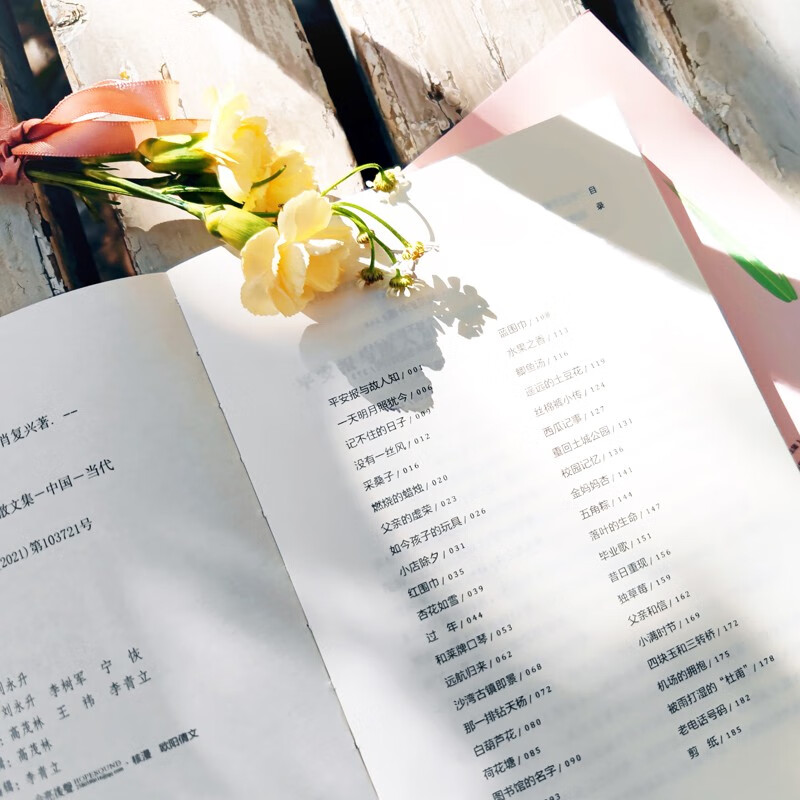 肖复兴著. 一
散文集－中国－当代
2021) 第103721号
刘永升
刘永升 李树军 宁 恢
高茂林 王 祎 李青立
高茂林
李青立
HOPESOUND · 核漫 欧阳倩文
目录
平安报与故人知 / 001
一天明月照犹今 / 006
记不住的日子 / 009
没有一丝风 / 012
采桑子 / 016
燃烧的蜡烛 / 020
父亲的虚荣 / 023
如今孩子的玩具 / 026
小店除夕 / 031
红围巾 / 035
杏花如雪 / 039
过 年 / 044
和莱牌口琴 / 053
远航归来 / 062
沙湾古镇即景 / 068
那一排钻天杨 / 072
白葫芦花 / 080
荷花塘 / 085
图书馆的名字 / 090
093
蓝围巾 / 108
水果之香 / 111
鲫鱼汤 / 116
遥远的土豆花 / 119
丝棉裤小传 / 124
西瓜记事 / 127
重回土城公园 / 131
校园记忆 / 136
金妈妈杏 / 141
五角粽 / 144
落叶的生命 / 147
毕业歌 / 151
昔日重现 / 156
独草莓 / 159
父亲和信 / 162
小满时节 / 169
四块玉和三转桥 / 172
机场的拥抱 / 175
被雨打湿的“杜甫” / 178
老电话号码 / 182
剪 纸 / 185